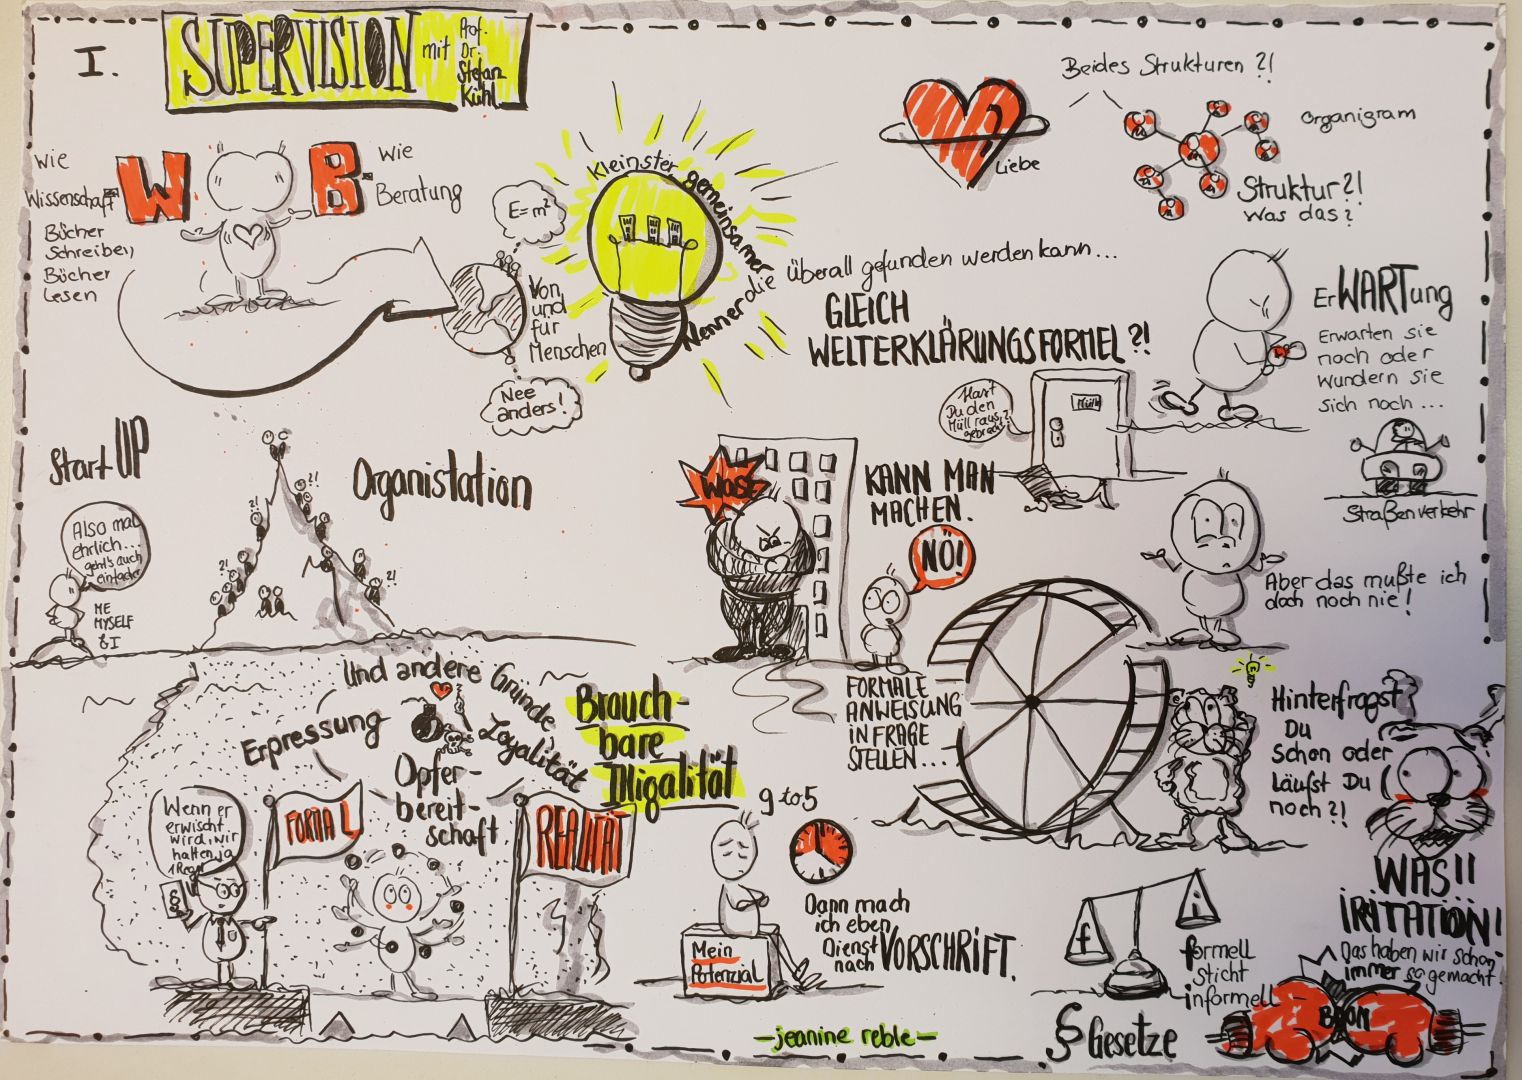 I.
SUPERVISION
mit
Prof.
Dr.
Stefan
Kühl
wie
Wissenschaft
W
B
wie
Beratung
Bücher
Schreiben,
Bücher
Lesen
E=m²
Von
und
für
Menschen
Nee
anders!
Kleinster gemeinsamer
Nenner die überall gefunden werden kann...
GLEICH
WELTERKLÄRUNGSFORMEL?!
Liebe
Beides Strukturen?!
Organigram
Struktur?!
Was das?
ErWARTung
Erwarten sie
noch oder
wundern sie
sich noch...
Hast
Du den
Müll raus
gebracht?
Müll
Straßenverkehr
Aber das mußte ich
doch noch nie!
Start UP
Also mal
ehrlich...
geht's auch
einfacher
ME
MYSELF
& I
?!
?!
?!
?!
?!
Organistation
Was?
KANN MAN
MACHEN.
NÖ!
FORMALE
ANWEISUNG
IN FRAGE
STELLEN...
Hinterfragst
Du
Schon oder
Läufst Du
noch?!
Und andere Gründe
Erpressung
Loyalität
Opfer-
bereit-
schaft
Brauch-
bare
Illigalität
Wenn er
erwischt
wird, wir
hatten ja
1 Regel
§
FORMAL
REALITÄT
9 to 5
Mein
Potenzial
Dann mach
ich eben
Dienst
nach VORSCHRIFT.
f
i
formell
sticht
informell
§ Gesetze
WAS!!
IRITATION!
Das haben wir schon
immer so gemacht.
BOOM
-jeanine reble-